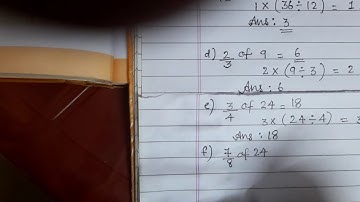 1 × (36 ÷ 12) = 1
Ans : 3
d) 2/3 of 9 = 6
2 × (9 ÷ 3) = 2
Ans : 6
e) 3/4 of 24 = 18
3 × (24 ÷ 4) = 3
Ans : 18
f) 7/8 of 24